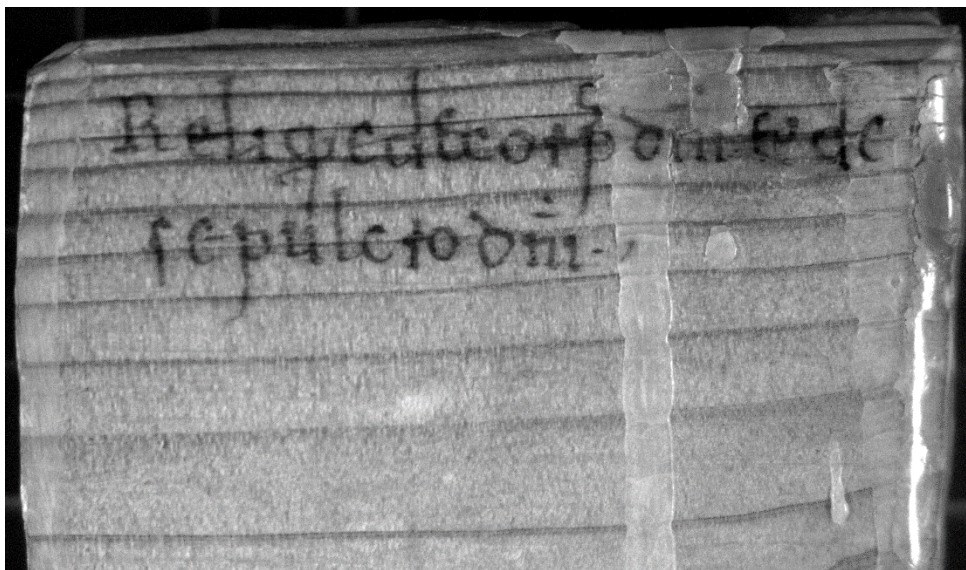 Reliq̨ de corp dni & de
sepulcro dni.